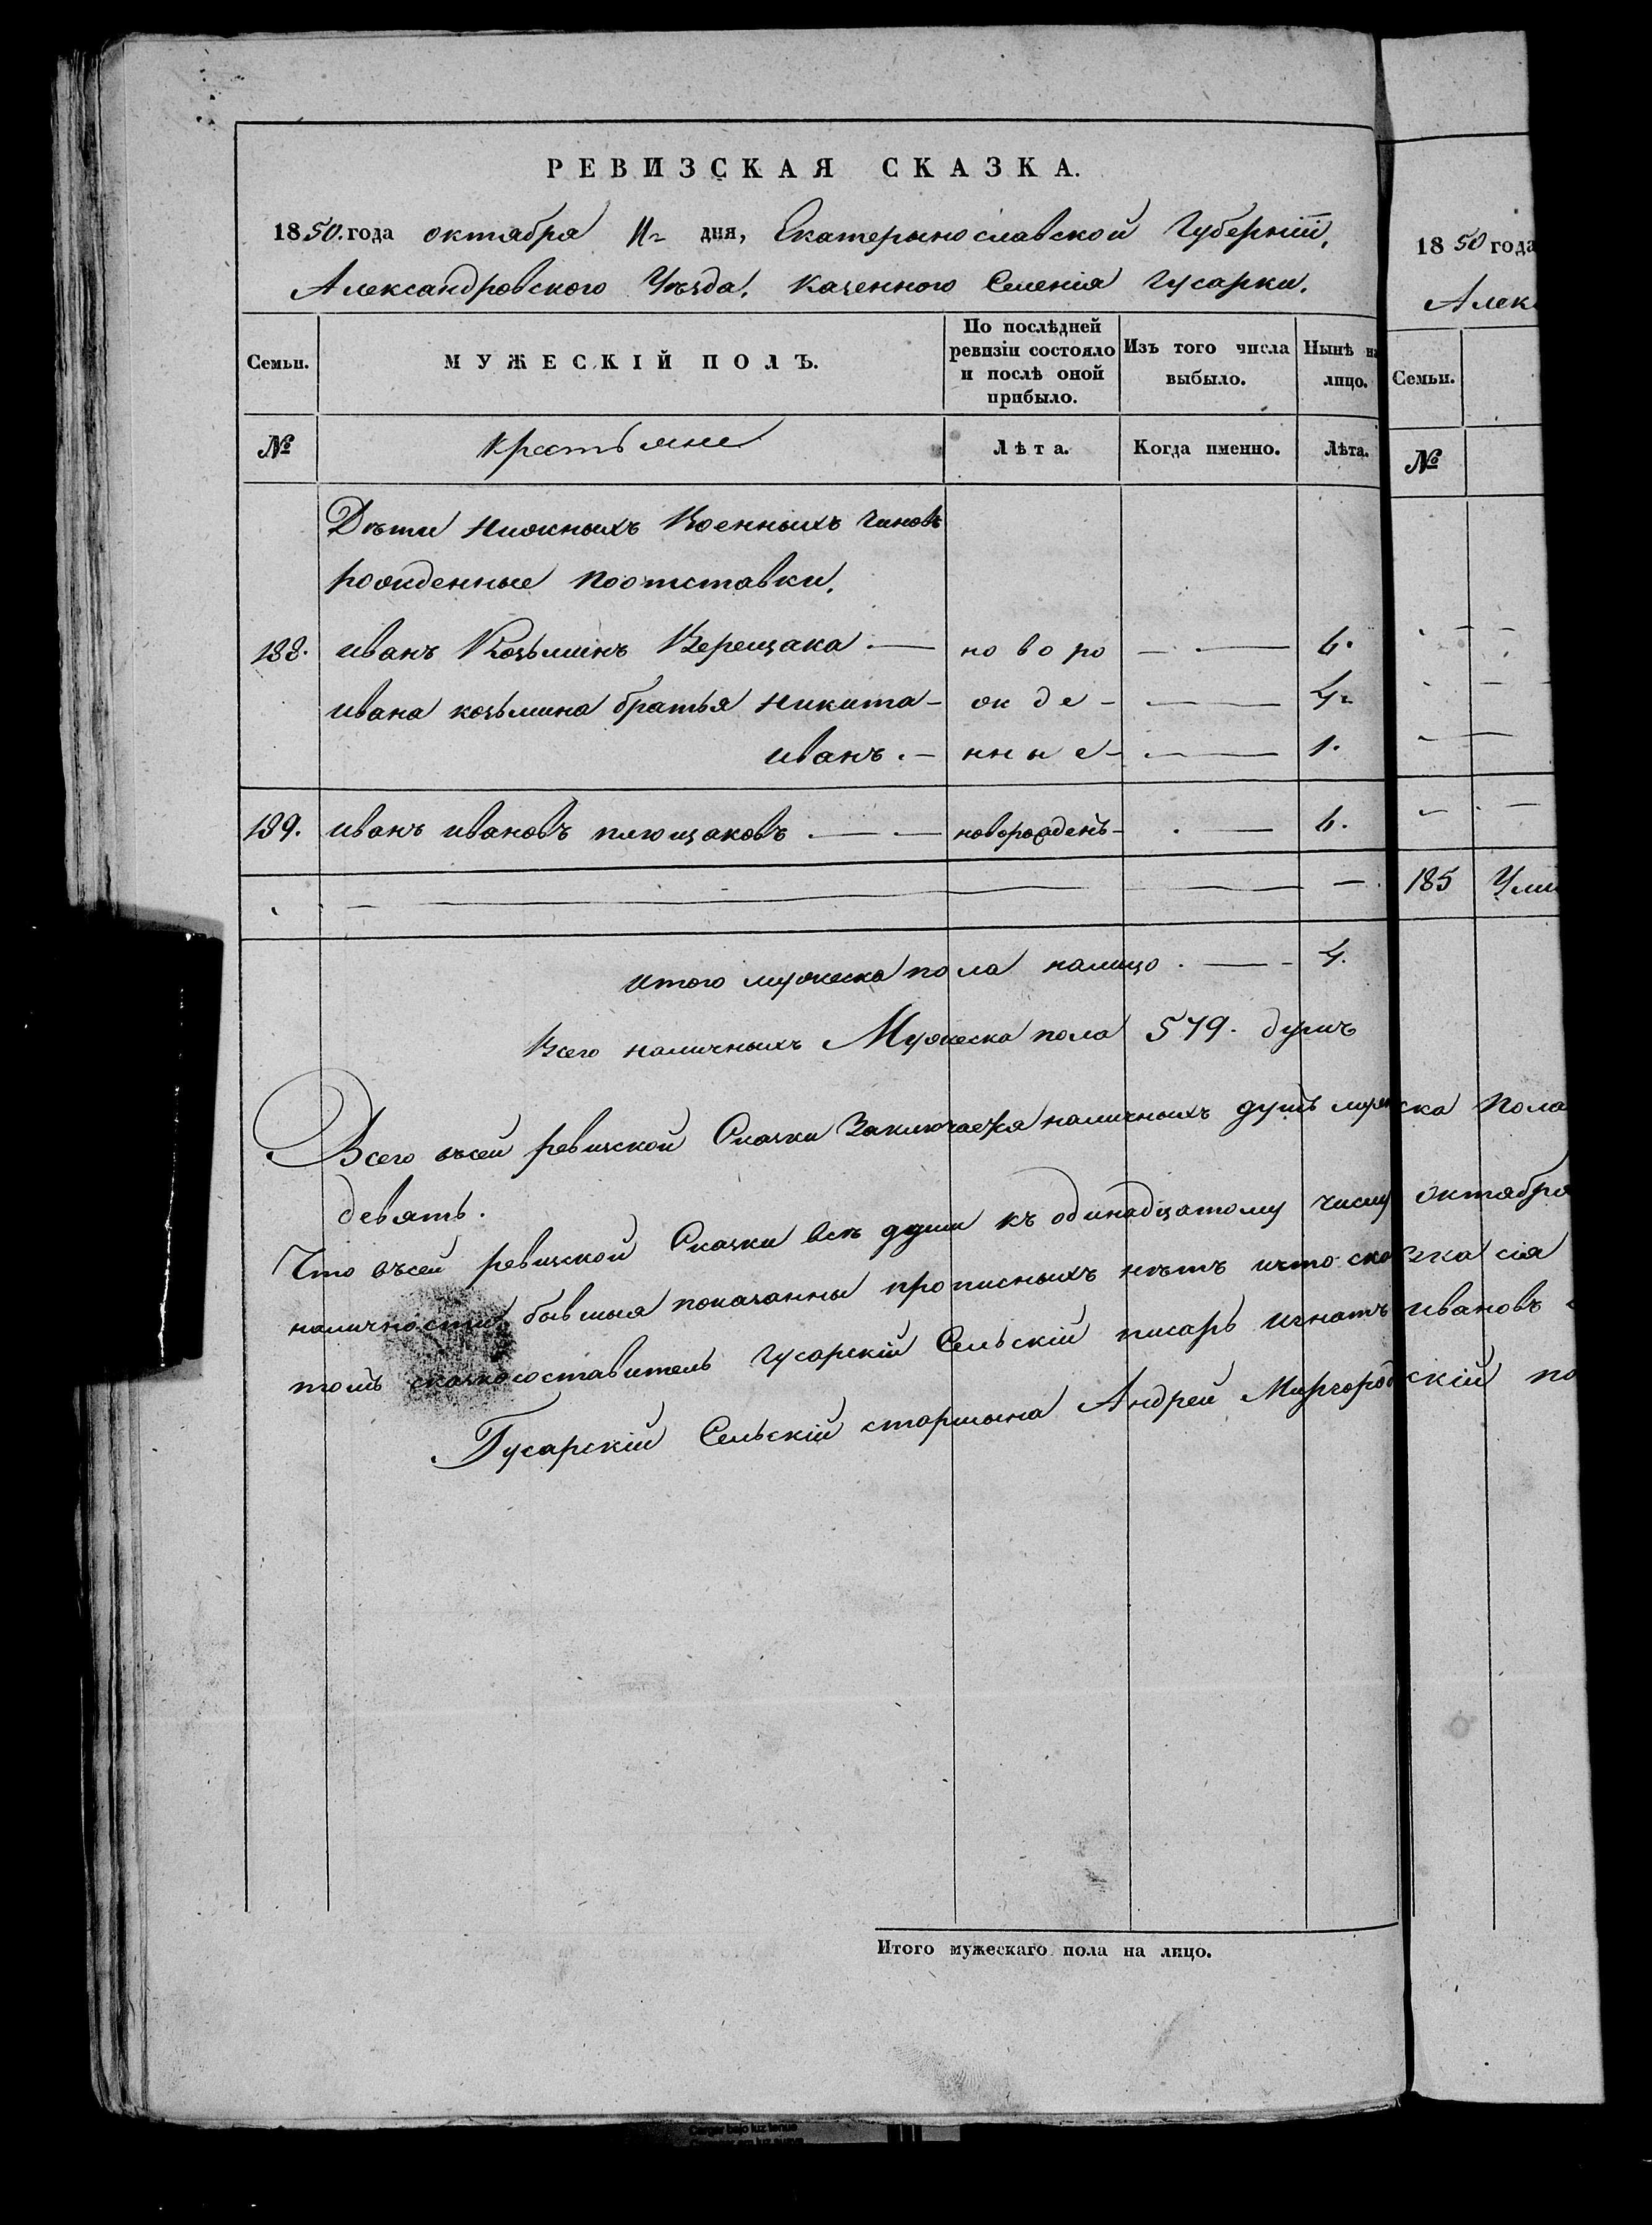 РЕВИЗСКАЯ СКАЗКА.
1850. года октября 11г дня, Екатерынославской Губерніи,
Александровского Уѣзда, Казенного Селенія Гусарки.
Семьи. МУЖЕСКІЙ ПОЛЪ. По послѣдней ревизіи состояло и послѣ оной прибыло. Изъ того числа выбыло. Нынѣ на лицо.
№ крестьяне Лѣта. Когда именно. Лѣта.
Дѣти нижныхъ Военныхъ чиновъ
рожденные поотставки,
188. иванъ Козьминъ Верещака — но во ро — 6.
ивана козьмина братья никита - ж де - — 4г
иванъ. - нны е - — 1.
189. иванъ ивановъ плющаковъ — новорожденъ - — 6.
итого мужеска пола налицо — 4.
Всего наличныхъ Мужеска пола 579. душъ
Всего въсей ревизской Сказки Заключается наличныхъ душъ мужеска пола
девять.
Что въсей ревизской Сказки всѣ души къ одинадцатому числу октября
наличности бывшыя показанны прописныхъ нѣтъ ичто сказка сія
томъ сказкосоставитель Гусарскій Сельскій писарь Игнатъ ивановъ
Гусарскій Сельскій старшына Андрей Миргородскій по
Итого мужескаго пола на лицо.
18 50 года
Алек
Семьи.
№
185